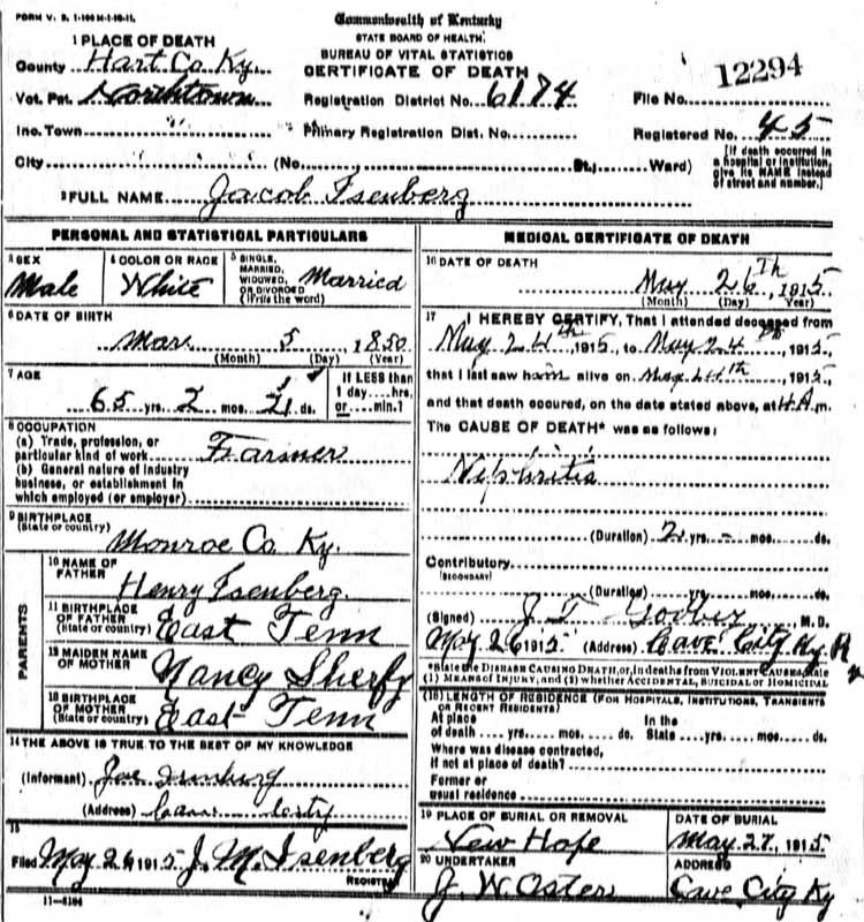 FORM V. S. 1-100 M-1-10-11.
Commonwealth of Kentucky
STATE BOARD OF HEALTH.
BUREAU OF VITAL STATISTICS
CERTIFICATE OF DEATH
1 PLACE OF DEATH
County Hart Co Ky.
Vot. Pct. Northtown
Inc. Town
City
Registration District No. 6174
Primary Registration Dist. No.
(No. St.; Ward)
File No. 12294
Registered No. 45
[If death occurred in
a hospital or institution,
give its NAME instead
of street and number.]
2 FULL NAME Jacob Isenberg
PERSONAL AND STATISTICAL PARTICULARS
3 SEX
Male
4 COLOR OR RACE
White
5 SINGLE,
MARRIED,
WIDOWED,
OR DIVORCED
(Write the word)
Married
6 DATE OF BIRTH
Mar. 5 1850
(Month) (Day) (Year)
7 AGE
65 yrs. 2 mos. 21 ds.
If LESS than
1 day....hrs.
or....min.?
8 OCCUPATION
(a) Trade, profession, or
particular kind of work Farmer
(b) General nature of industry
business, or establishment in
which employed (or employer)
9 BIRTHPLACE
(State or country)
Monroe Co. Ky.
PARENTS
10 NAME OF
FATHER
Henry Isenberg.
11 BIRTHPLACE
OF FATHER
(State or country) East Tenn
12 MAIDEN NAME
OF MOTHER Nancy Sherfy
13 BIRTHPLACE
OF MOTHER
(State or country) East Tenn
14 THE ABOVE IS TRUE TO THE BEST OF MY KNOWLEDGE
(Informant) Joe Isenberg
(Address) Cave City
15
Filed May 26 1915 J. M. Isenberg
REGISTRAR
11-5184
MEDICAL CERTIFICATE OF DEATH
16 DATE OF DEATH
May 26th, 1915
(Month) (Day) (Year)
17 I HEREBY CERTIFY, That I attended deceased from
May 24th, 1915, to May 24th, 1915,
that I last saw him alive on May 24th, 1915,
and that death occured, on the date stated above, at 4 A.m.
The CAUSE OF DEATH* was as follows:
Nephritis
(Duration) 2 yrs. - mos. ds.
Contributory
(SECONDARY)
(Duration) yrs. mos. ds.
(Signed) J. T. , M.D.
May 26 1915 (Address) Cave City Ky R
*State the DISEASE CAUSING DEATH, or, in deaths from VIOLENT CAUSES, state
(1) MEANS of INJURY; and (2) whether ACCIDENTAL, SUICIDAL or HOMICIDAL
(18) LENGTH OF RESIDENCE (FOR HOSPITALS, INSTITUTIONS, TRANSIENTS
OR RECENT RESIDENTS)
At place In the
of death .... yrs. .... mos. .... ds. State .... yrs. .... mos. .... ds.
Where was disease contracted,
if not at place of death?
Former or
usual residence
19 PLACE OF BURIAL OR REMOVAL
New Hope
DATE OF BURIAL
May 27, 1915
20 UNDERTAKER
J. W. Oster
ADDRESS
Cave City Ky